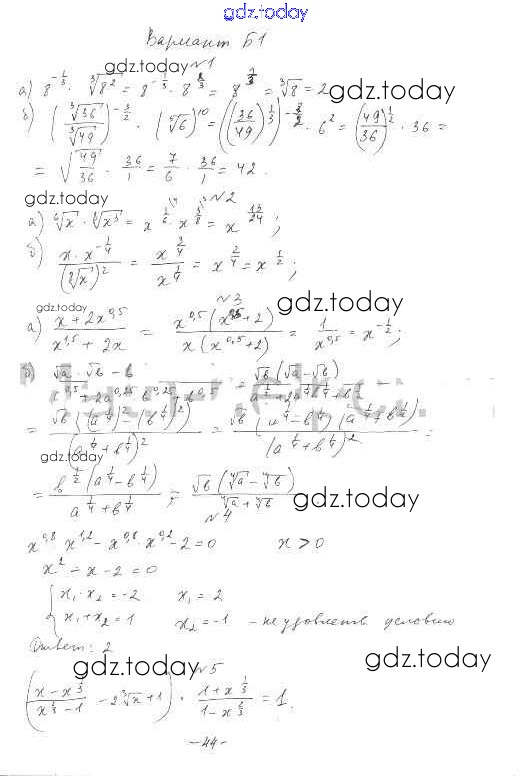 gdz.today
Вариант Б1
gdz.today
№1
а) 8^(-1/3) · ∛(8²) = 8^(-1/3) · 8^(2/3) = 8^(1/3) = ∛8 = 2
gdz.today
б) (∛36 / ∛49)^(-3/2) · (⁵√6)^10 = ((36/49)^(1/3))^(-3/2) · 6² = (49/36)^(1/2) · 36 =
= √(49/36) · 36/1 = 7/6 · 36/1 = 42.
gdz.today
№2
а) ⁶√x · ⁸√(x³) = x^(1/6) · x^(3/8) = x^(13/24);
б) (x · x^(-1/4)) / (⁸√x)² = x^(3/4) / x^(1/4) = x^(2/4) = x^(1/2);
gdz.today
№3
gdz.today
а) (x + 2x^0,5) / (x^1,5 + 2x) = x^0,5 (x^0,5 + 2) / (x (x^0,5 + 2)) = 1 / x^0,5 = x^(-1/2);
√a · √b - b
√b (√a - √b)
= √b ((a^(1/4))² - (b^(1/4))²) / (a^(1/4) + b^(1/4))² = √b (a^(1/4) - b^(1/4)) (a^(1/4) + b^(1/4)) / (a^(1/4) + b^(1/4))² =
gdz.today
= b^(1/2) (a^(1/4) - b^(1/4)) / (a^(1/4) + b^(1/4)) = √b (⁴√a - ⁴√b) / (⁴√a + ⁴√b)
gdz.today
№4
x^0,8 · x^1,2 - x^0,8 · x^0,2 - 2 = 0 x > 0
x² - x - 2 = 0
x₁ · x₂ = -2 x₁ = 2
x₁ + x₂ = 1 x₂ = -1 - не удовлетв. условию
Ответ: 2
gdz.today
gdz.today
№5
((x - x^(1/3)) / (x^(1/3) - 1) - 2∛x + 1) · (1 + x^(1/3)) / (1 - x^(2/3)) = 1.
- 44 -